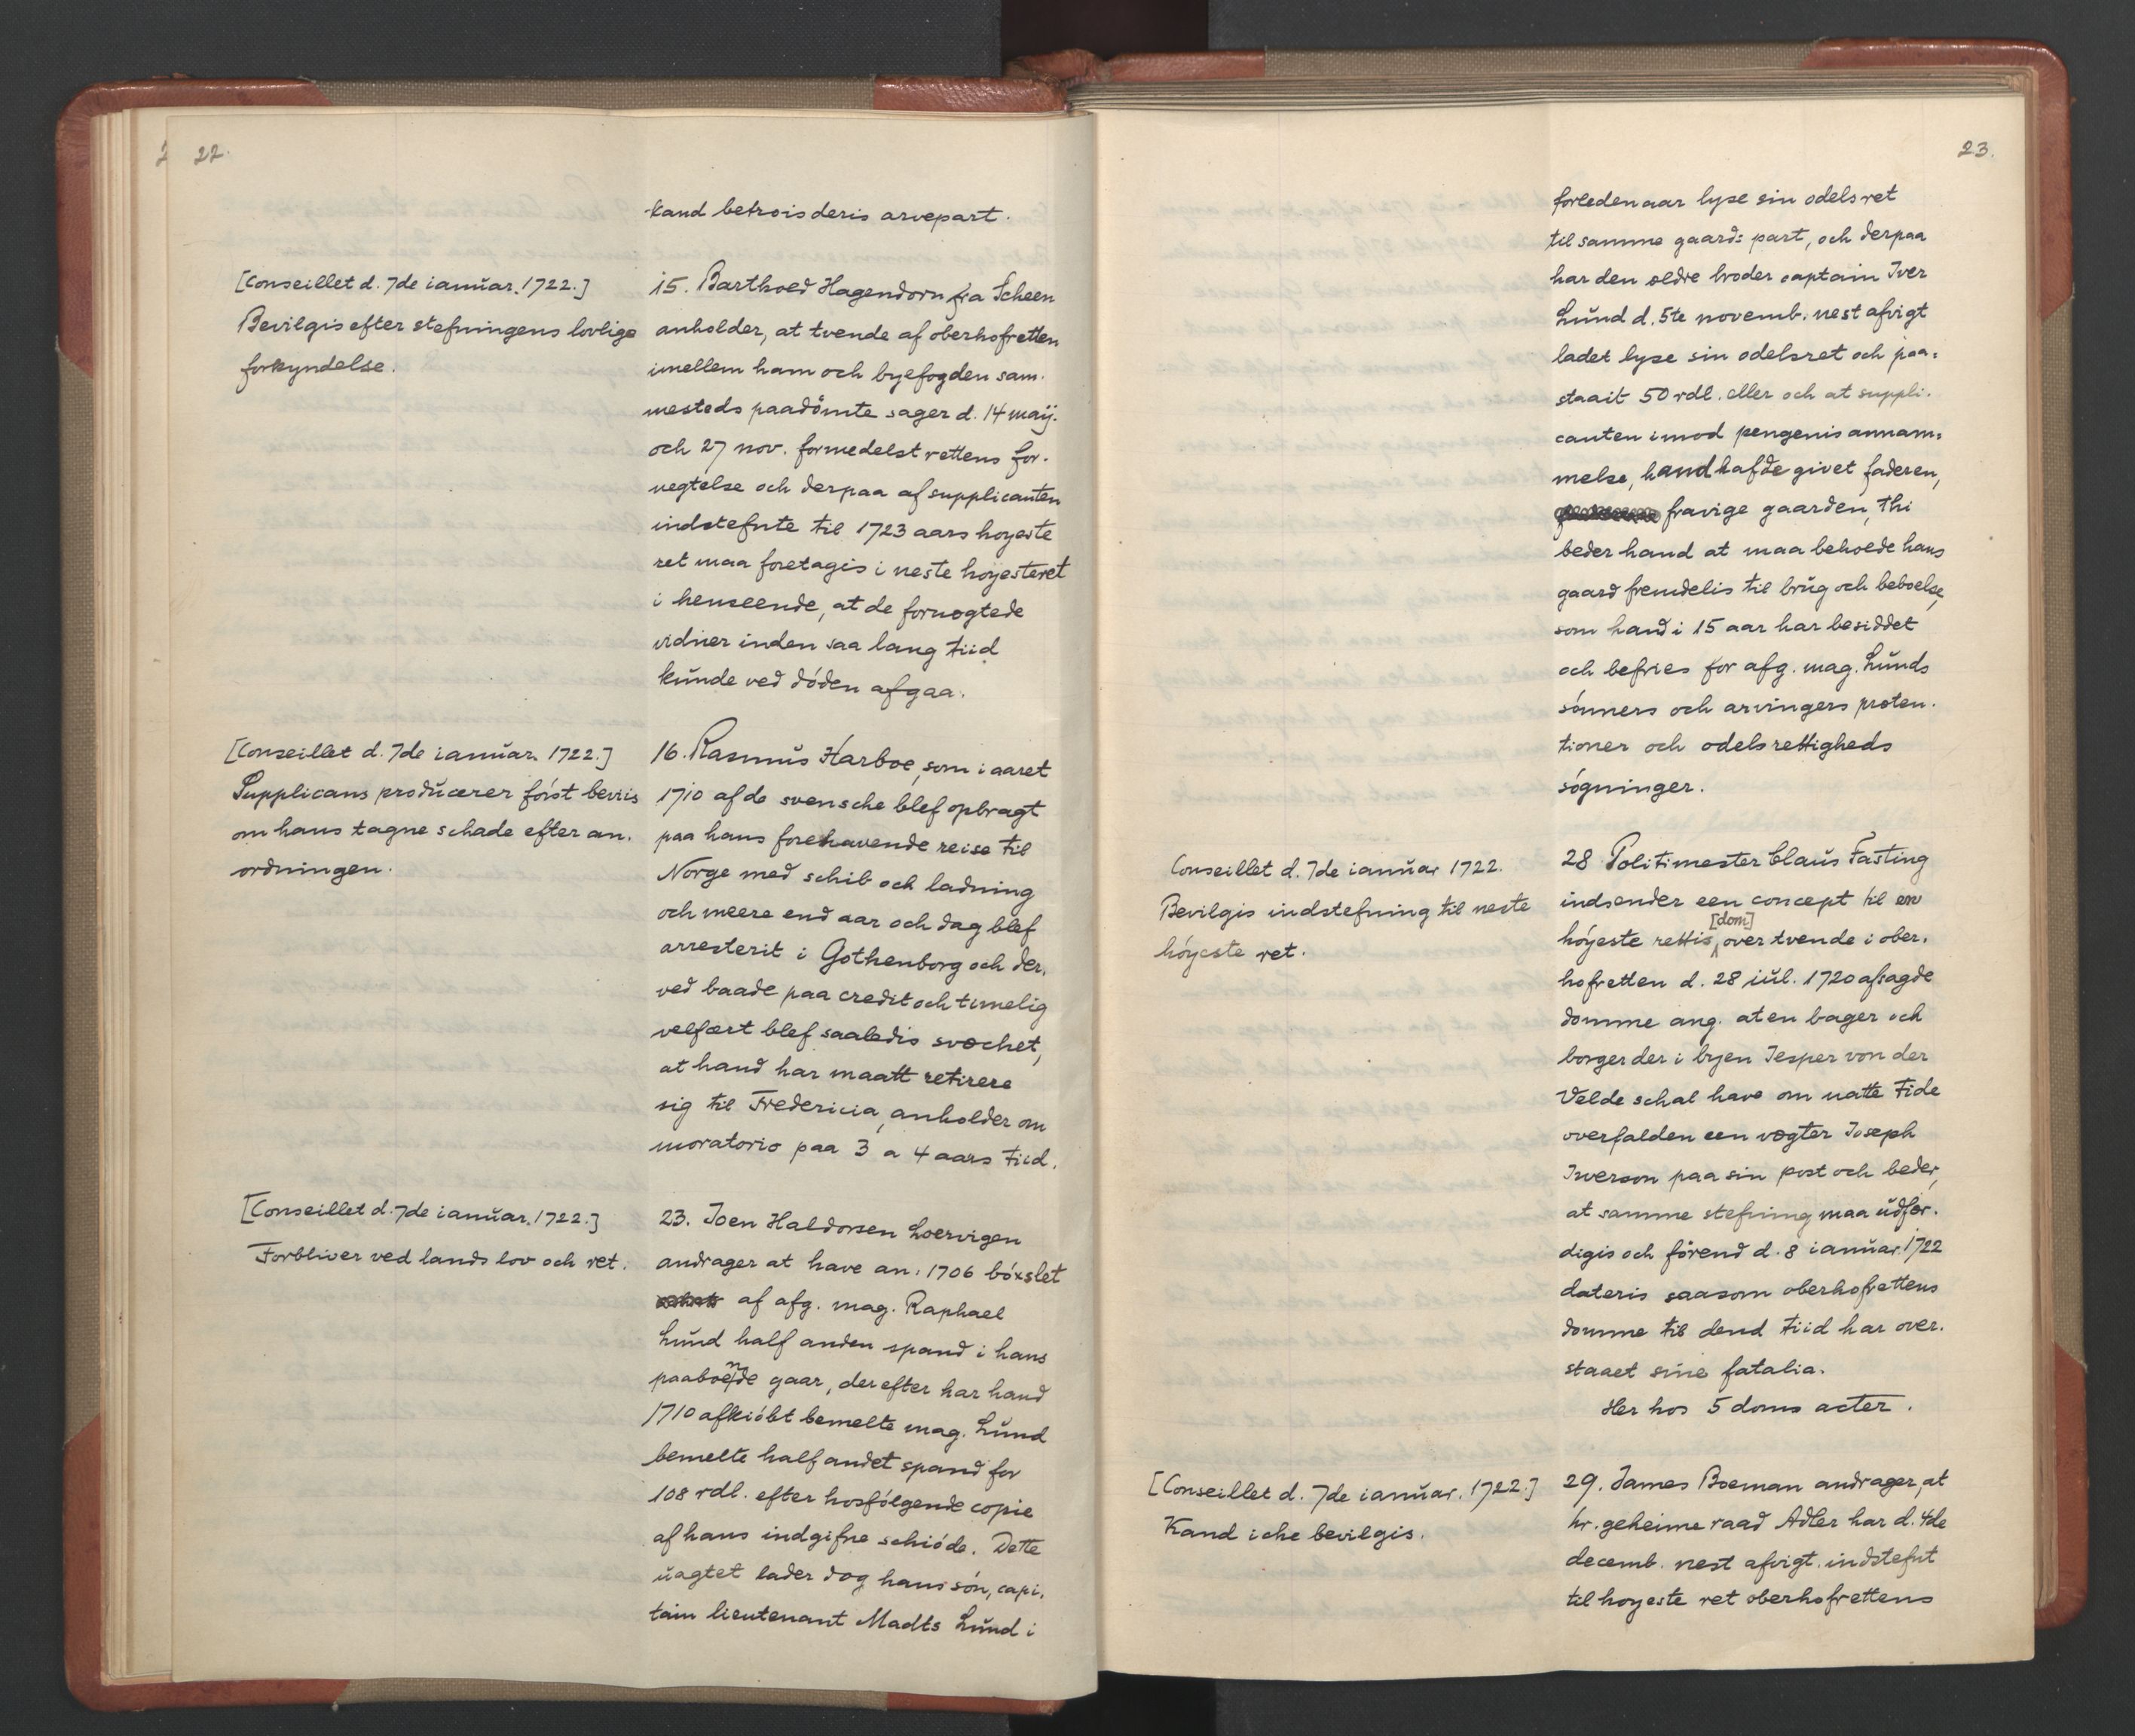 22.
kand betrois deris arvepart.
[Conseillet d. 7de ianŭar. 1722.]
Bevilgis efter stefningens lovlige
forkyndelse.
15. Barthoed Hagendorn fra Scheen
anholder, at tvende af oberhofretten
imellem ham och byefogden sam-
mesteds paadömte sager d. 14 maij.
och 27 nov. formedelst rettens for-
negtelse och derpaa af supplicanten
indstefnte til 1723 aars hoyeste
ret maa foretagis i neste hoyesteret
i henseende, at de fornegtede
vidner inden saa lang tiid
kŭnde ved döden afgaa.
[Conseillet d. 7de ianŭar. 1722.]
Supplicans prodŭcerer först beviis
om hans tagne schade efter an-
ordningen.
16. Rasmŭs Harboe, som i aaret
1710 af de svensche blef opbragt
paa hans forehavende reise til
Norge med schib och ladning
och meere end aar och dag blef
arresterit i Gothenborg och der-
ved baade paa credit och timelig
velfært blef saaledis svæchet,
at hand har maatt retirere
sig til Fredericia, anholder om
moratorio paa 3 a 4 aars tiid.
[Conseillet d. 7de ianŭar. 1722.]
Forbliver ved lands lov och ret.
23. Joen Haldorsen Loervigen
andrager at have an: 1706 böxslet
af afg. mag. Raphael
Lŭnd half anden spand i hans
paaboende gaar, derefter har hand
1710 afkiöbt bemelte mag. Lŭnd
bemelte half andet spand for
108 rdl. efter hosfölgende copie
af hans indgifne schiöde. Dette
ŭagtet lader dog hans sön, capi-
tain lieutenant Madts Lŭnd i
23.
forleden aar lyse sin odelsret
til samme gaards part, och derpaa
har den ældre broder captain Iver
Lŭnd d. 5te novemb. nest afvigt
ladet lyse sin odelsret och paa-
staait 50 rdl. eller och at suppli-
canten imod pengenis annam-
melse, hand hafde givet faderen,
fravige gaarden, thi
beder hand at maa behoede hans
gaard fremdelis til brŭg och beboelse,
som hand i 15 aar har besiddet
och befries for afg. mag. Lŭnds
sönners och arvingers præten-
tioner och odelsrettigheds
sögninger.
Conseillet d. 7de ianŭar 1722.
Bevilgis indstefning til neste
höyeste ret.
28. Politimester Claŭs Fasting
indsender een concept til en
höyeste rettis [dom] over tvende i ober-
hofretten d. 28 iŭl. 1720 afsagde
domme ang. at en bager och
borger der i byen Jesper von der
Velde schal have om natte tide
overfalden een vægter Joseph
Iverson paa sin post och beder,
at samme stefning maa ŭdfer-
digis och förend d. 8 ianŭar. 1722
dateris saasom oberhofrettens
domme til dend tiid har over-
staaet sine fatalia.
Her hos 5 doms acter.
[Conseillet d. 7de ianŭar. 1722.]
Kand iche bevilgis.
29. James Boeman andrager, at
hr. geheime raad Adler har d. 4de
decemb. nest afvigt. indstefnt
til hoyeste ret oberhofrettens